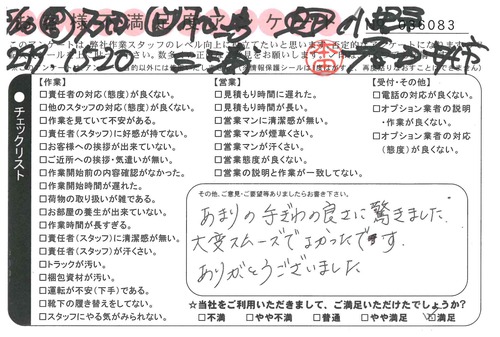 お客様満足度アンケート
No. 036083
このアンケートは、弊社作業スタッフのレベル向上に役立てたいと思います。
●チェックリスト
【作業】
□責任者の対応(態度)が良くない。
□他のスタッフの対応(態度)が良くない。
□作業を見ていて不安がある。
□責任者(スタッフ)に好感が持てない。
□お客様への挨拶が出来ていない。
□ご近所への挨拶・気遣いが無い。
□作業開始前の内容確認がなかった。
□作業開始時間が遅れた。
□荷物の取り扱いが雑である。
□お部屋の養生が出来ていない。
□作業時間が長すぎる。
□責任者(スタッフ)に清潔感が無い。
□責任者(スタッフ)が汗くさい。
□トラックが汚い。
□梱包資材が汚い。
□運転が不安(下手)である。
□靴下の履き替えをしてない。
□スタッフにやる気がみられない。
【営業】
□見積もり時間に遅れた。
□見積もり時間が長い。
□営業マンに清潔感が無い。
□営業マンが煙草くさい。
□営業マンが汗くさい。
□営業態度が良くない。
□営業の説明と作業が一致してない。
【受付・その他】
□電話の対応が良くない。
□オプション業者の説明
・作業が良くない。
□オプション業者の対応
(態度)が良くない。
その他、ご意見・ご要望等ありましたらお書き下さい。
あまりの手ぎわの良さに驚きました。
大変スムーズでよかったです。
ありがとうございました
☆当社をご利用いただきまして、ご満足いただけたでしょうか?
□不満 □やや不満 □普通 □やや満足 □満足